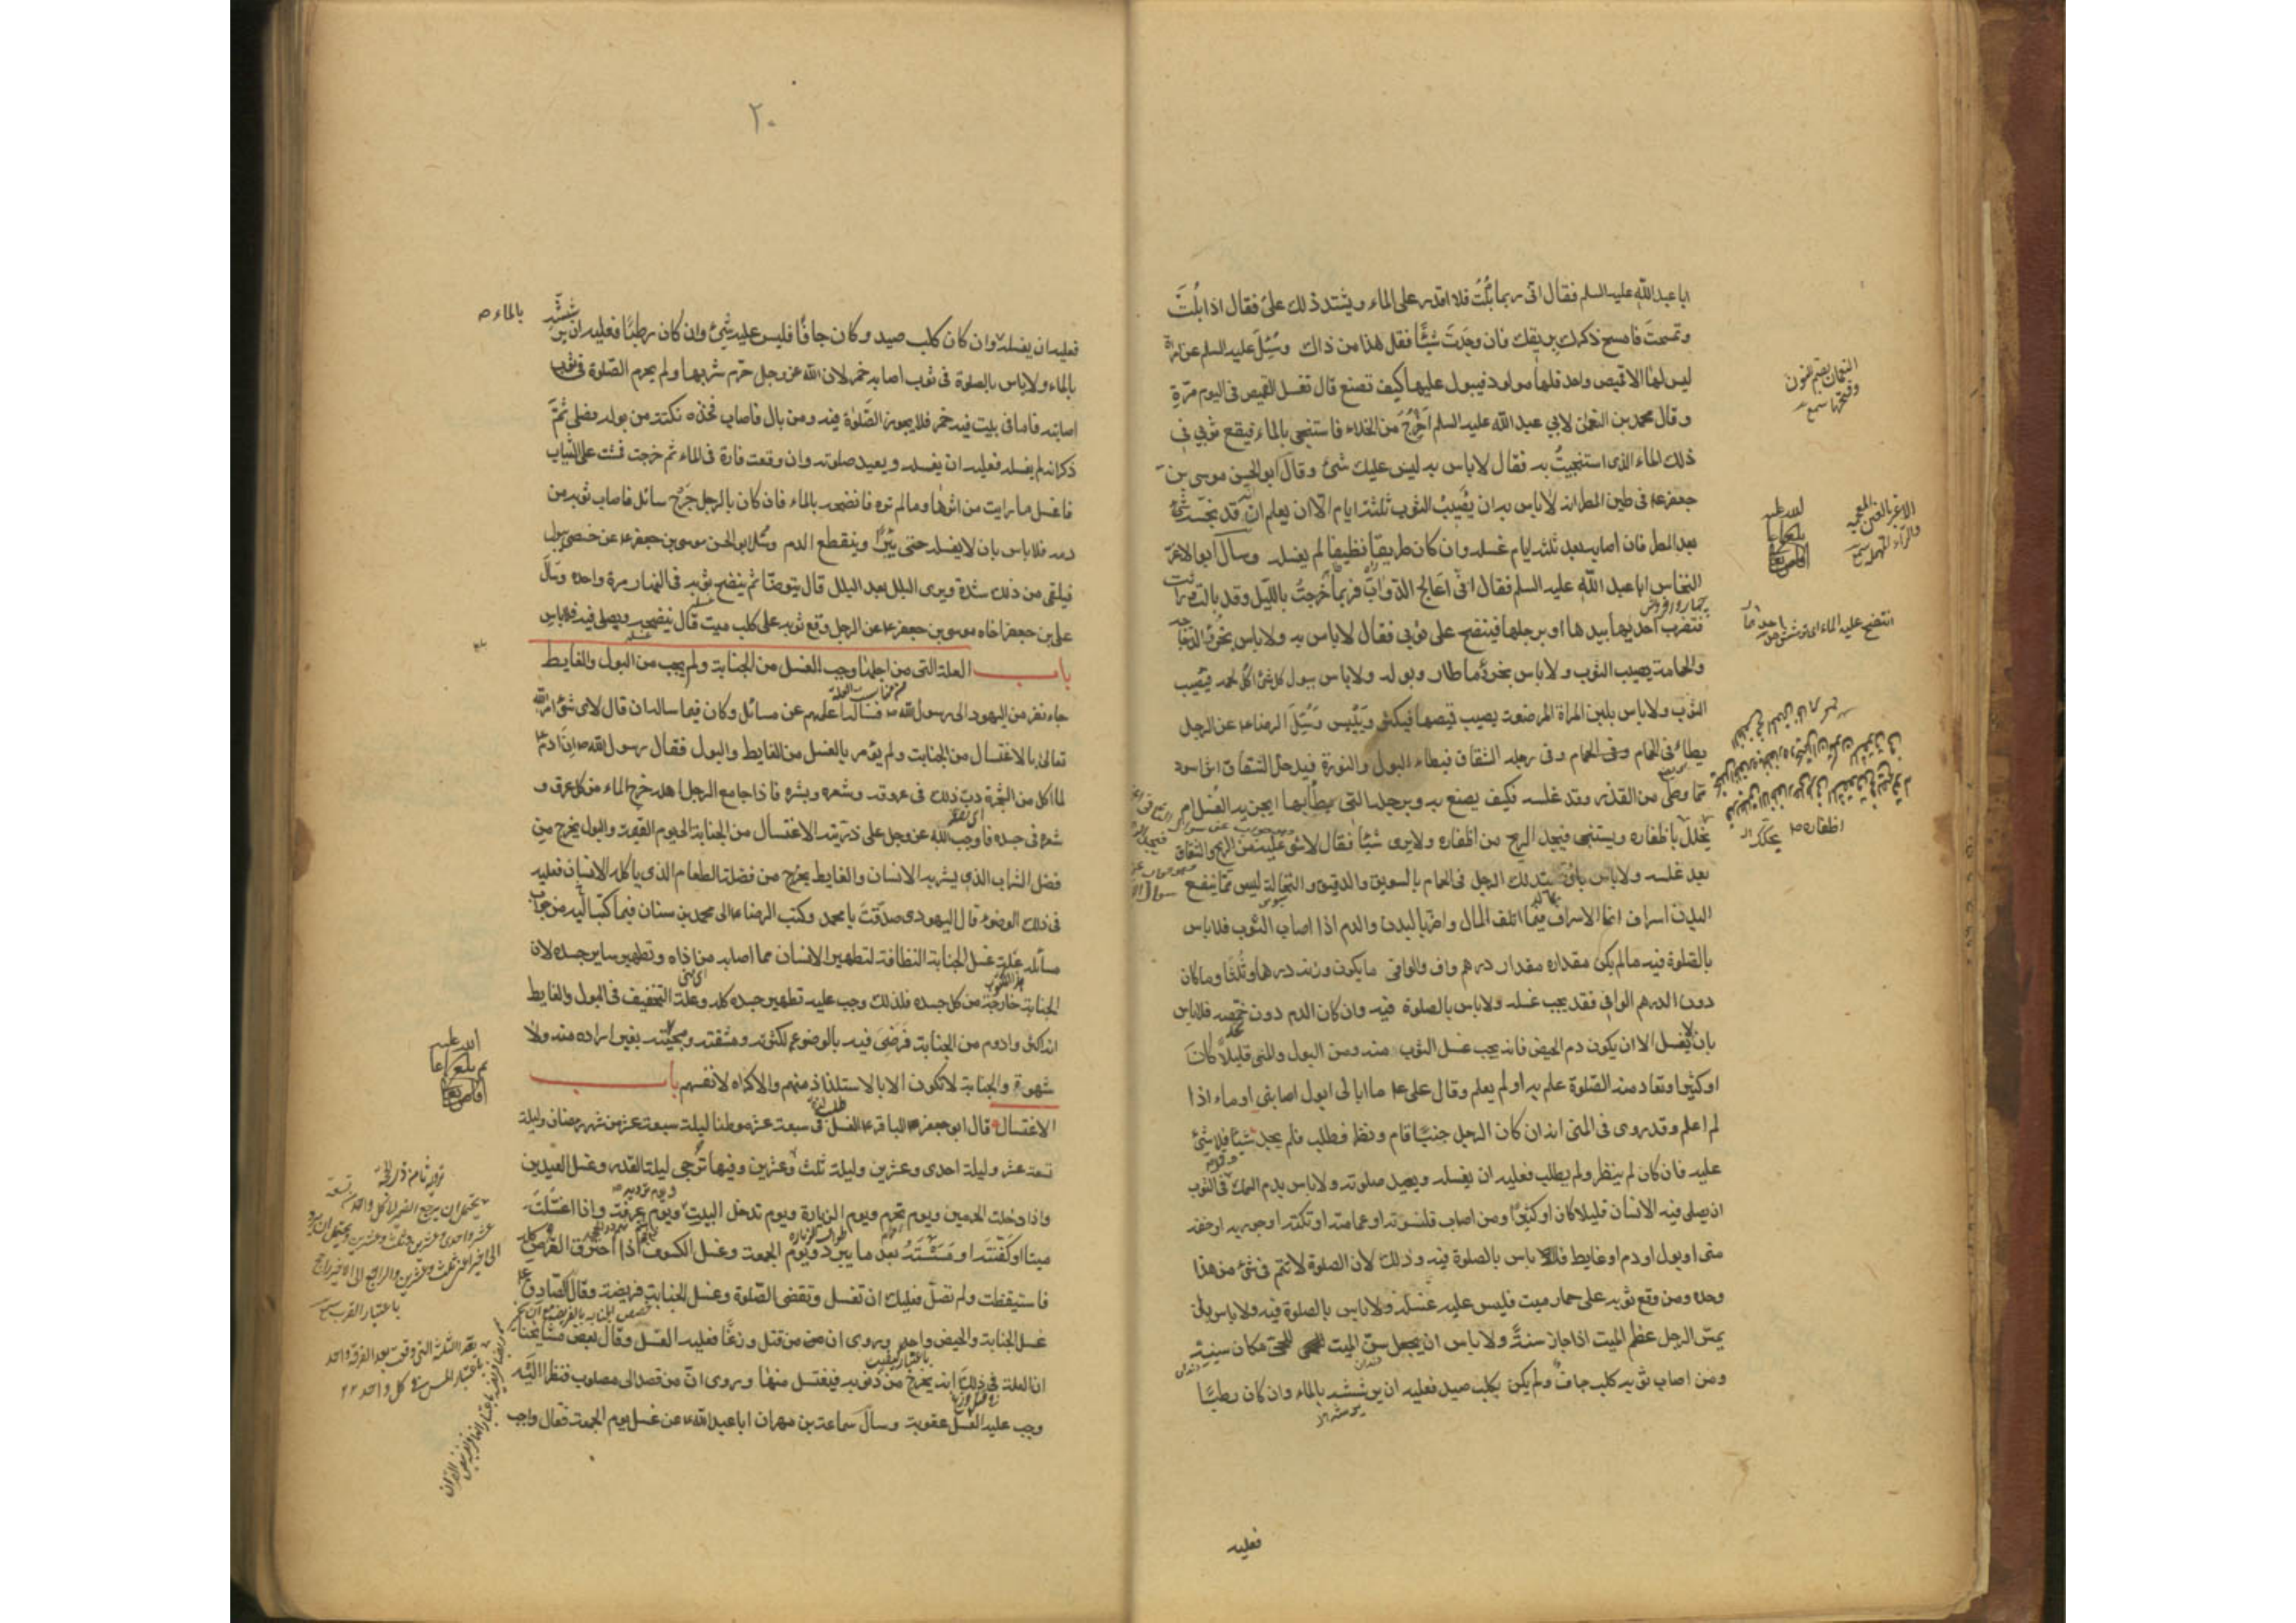 ابا عبد الله عليه السلم فقال انى ربما بلت فلا اقدر على الماء ويشتد ذلك على فقال اذا بلت
وتمسحت فامسح ذكرك بريقك فان وجدت شيئا فقل هذا من ذاك وسئل عليه السلم عن امراة
ليس لها الا قميص واحد ولها مولود فيبول عليها كيف تصنع قال تغسل القميص فى اليوم مرة
وقال محمد بن النعمن لابي عبد الله عليه السلم اخرج من الخلاء فاستنجى بالماء فيقع ثوبي في
ذلك الماء الذى استنجيت به فقال لا باس به ليس عليك شئ وقال ابو الحسن موسى بن
جعفر ع فى طين المطر انه لا باس به ان يصيب الثوب ثلثة ايام الا ان يعلم انه قد نجسه شئ
بعد المطر فان اصابه بعد ثلثة ايام غسله وان كان طريقا نظيفا لم يغسله وسال ابو الاغر
النخاس ابا عبد الله عليه السلم فقال انى اعالج الدواب فربما خرجت بالليل وقد بالت وراثت
فتضرب احديها بيدها او برجلها فينضح على ثوبي فقال لا باس به ولا باس بخرء الدجاجة
والحمامة يصيب الثوب ولا باس بخرء ما طار وبوله ولا باس ببول كل شئ اكل لحمه فيصيب
الثوب ولا باس بلبن المراة المرضعة يصيب قميصها فيكثر وييبس وسئل الرضا ع عن الرجل
يطاء فى الحمام وفى رجله الشقاق فيطاء البول والنورة فيدخل الشقاق اثر اسود
مما وطى من القذر وقد غسله فكيف يصنع به وبرجله التى يطأ بها ايجزيه الغسل ام
يخلل باظفاره ويستنجى فيجد الريح من اظفاره ولا يرى شيئا فقال لا شئ عليه من الريح والشقاق
بعد غسله ولا باس بان يتدلك الرجل فى الحمام بالسويق والدقيق والنخالة ليس مما ينفع
البدن اسراف انما الاسراف فيما اتلف المال واضر بالبدن والدم اذا اصاب الثوب فلا باس
بالصلوة فيه ما لم يكن مقداره مقدار درهم واف والوافى ما يكون وزنه درهما وثلثا وما كان
دون الدرهم الوافى فقد يجب غسله ولا باس بالصلوة فيه وان كان الدم دون حمصه فلا باس
بان لا يغسل الا ان يكون دم الحيض فانه يجب غسل الثوب منه ومن البول والمنى قليلا كان
او كثيرا وتعاد منه الصلوة علم به او لم يعلم وقال على ع ما ابالى ابول اصابنى او ماء اذا
لم اعلم وقد روى فى المنى انه ان كان الرجل جنبا قام ونظر فطلب فلم يجد شيئا فلا شئ
عليه فان كان لم ينظر ولم يطلب فعليه ان يغسله ويعيد صلوته ولا باس بدم السمك فى الثوب
ان يصلى فيه الانسان قليلا كان او كثيرا ومن اصاب قلنسوته او عمامته او تكته او جوربه او خفه
منى او بول او دم او غايط فلا باس بالصلوة فيه وذلك لان الصلوة لا تتم فى شئ من هذا
وحده ومن وقع ثوبه على حمار ميت فليس عليه غسله ولا باس بالصلوة فيه ولا باس بان
يمس الرجل عظم الميت اذا جاز سنة ولا باس ان يجعل سن الميت للحى مكان سنه
ومن اصاب ثوبه كلب جاف ولم يكن بكلب صيد فعليه ان يرششه بالماء وان كان رطبا
فعليه
النعمان بضم النون
وفتحها سمع
الاغر بالغين المعجمه
والراء المهملة سمع
انتضح عليه الماء اى ترشش
٢٠
فعليه ان يغسله وان كان كلب صيد وكان جافا فليس عليه شئ وان كان رطبا فعليه ان يرششه
بالماء ولا باس بالصلوة فى ثوب اصابه خمر لان الله عز وجل حرم شربها ولم يحرم الصلوة فى ثوب
اصابته فاما فى بيت فيه خمر فلا يجوز الصلوة فيه ومن بال فاصاب فخذه نكتة من بوله فصلى ثم
ذكر انه لم يغسله فعليه ان يغسله ويعيد صلوته وان وقعت فارة فى الماء ثم خرجت فمشت على الثياب
فاغسل ما رايت من اثرها وما لم تره فانضحه بالماء فان كان بالرجل جرح سائل فاصاب ثوبه من
دمه فلا باس بان لا يغسله حتى يبرا وينقطع الدم وسئل ابو الحسن موسى بن جعفر ع عن خصى يبول
فيلقى من ذلك شدة ويرى البلل بعد البلل قال يتوضا ثم ينضح ثوبه فى النهار مرة واحدة وسال
على بن جعفر اخاه موسى بن جعفر ع عن الرجل وقع ثوبه على كلب ميت قال ينضحه ويصلى فيه فلا باس
باب العلة التى من اجلها وجب الغسل من الجنابة ولم يجب من البول والغايط
جاء نفر من اليهود الى رسول الله ص فساله اعلمهم عن مسائل وكان فيما ساله ان قال لاى شئ امر الله
تعالى بالاغتسال من الجنابة ولم يؤمر بالغسل من الغايط والبول فقال رسول الله ص ان ادم ع
لما اكل من الشجرة دب ذلك فى عروقه وشعره وبشره فاذا جامع الرجل اهله خرج الماء من كل عرق و
شعرة فى جسده فاوجب الله عز وجل على ذريته الاغتسال من الجنابة الى يوم القيمة والبول يخرج من
فضل الشراب الذى يشربه الانسان والغايط يخرج من فضلة الطعام الذى ياكله الانسان فعليه
فى ذلك الوضوء قال اليهودى صدقت يا محمد وكتب الرضا ع الى محمد بن سنان فيما كتب اليه من جواب
مسائله علة غسل الجنابة النظافة لتطهير الانسان مما اصابه من اذاه وتطهير ساير جسده لان
الجنابة خارجة من كل جسده فلذلك وجب عليه تطهير جسده كله وعلة التخفيف فى البول والغايط
انه اكثر وادوم من الجنابة فرضى فيه بالوضوء لكثرته ومشقته ومجيئه بغير ارادة منه ولا
شهوة والجنابة لا تكون الا بالاستلذاذ منهم والاكراه لانفسهم باب
الاغتسال قال ابو جعفر الباقر ع الغسل فى سبعة عشر موطنا ليلة سبعة عشر من شهر رمضان وليلة
تسعة عشر وليلة احدى وعشرين وليلة ثلث وعشرين وفيها ترجى ليلة القدر وغسل العيدين
واذا دخلت الحرمين ويوم تحرم ويوم الزيارة ويوم تدخل البيت ويوم عرفة واذا اغتسلت
ميتا او كفنته او مسسته بعد ما يبرد ويوم الجمعة وغسل الكسوف اذا احترق القرص كله
فاستيقظت ولم تصل فعليك ان تغسل وتقضى الصلوة وغسل الجنابة فريضة وقال الصادق ع
غسل الجنابة والحيض واحد وروى ان من قتل وزغا فعليه الغسل وقال بعض مشايخنا
ان العلة فى ذلك انه يخرج من ذنوبه فيغتسل منها وروى ان من قصد الى مصلوب فنظر اليه
وجب عليه الغسل عقوبة وسال سماعة بن مهران ابا عبد الله ع عن غسل يوم الجمعة فقال واجب
بالماء